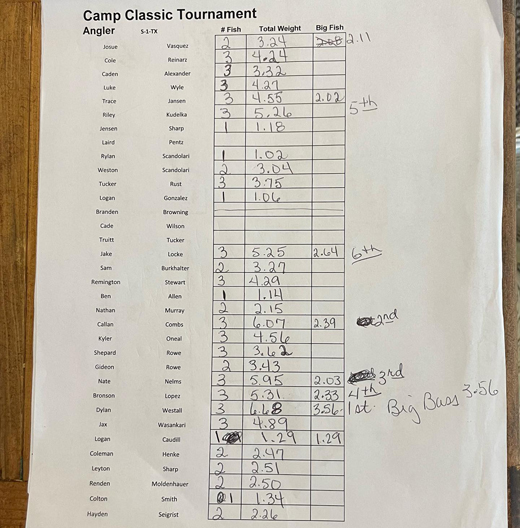 Camp Classic Tournament
Angler S-1-TX # Fish Total Weight Big Fish
Josue Vasquez 2 3.24 2.11
Cole Reinarz 3 4.24
Caden Alexander 3 3.32
Luke Wyle 3 4.27
Trace Jansen 3 4.55 2.02
Riley Kudelka 3 5.26 5th
Jensen Sharp 1 1.18
Laird Pentz
Rylan Scandolari 1 1.02
Weston Scandolari 2 3.04
Tucker Rust 3 3.75
Logan Gonzalez 1 1.06
Branden Browning
Cade Wilson
Truitt Tucker
Jake Locke 3 5.25 2.64 6th
Sam Burkhalter 2 3.27
Remington Stewart 3 4.29
Ben Allen 1 1.14
Nathan Murray 2 2.15
Callan Combs 3 6.07 2.39 2nd
Kyler Oneal 3 4.56
Shepard Rowe 3 3.62
Gideon Rowe 2 3.43
Nate Nelms 3 5.95 2.03 3rd
Bronson Lopez 3 5.31 2.33 4th
Dylan Westall 3 6.68 3.56 1st Big Bass 3.56
Jax Wasankari 3 4.89
Logan Caudill 1 1.29 1.29
Coleman Henke 2 2.47
Leyton Sharp 2 2.51
Renden Moldenhauer 2 2.50
Colton Smith 1 1.34
Hayden Seigrist 2 2.26